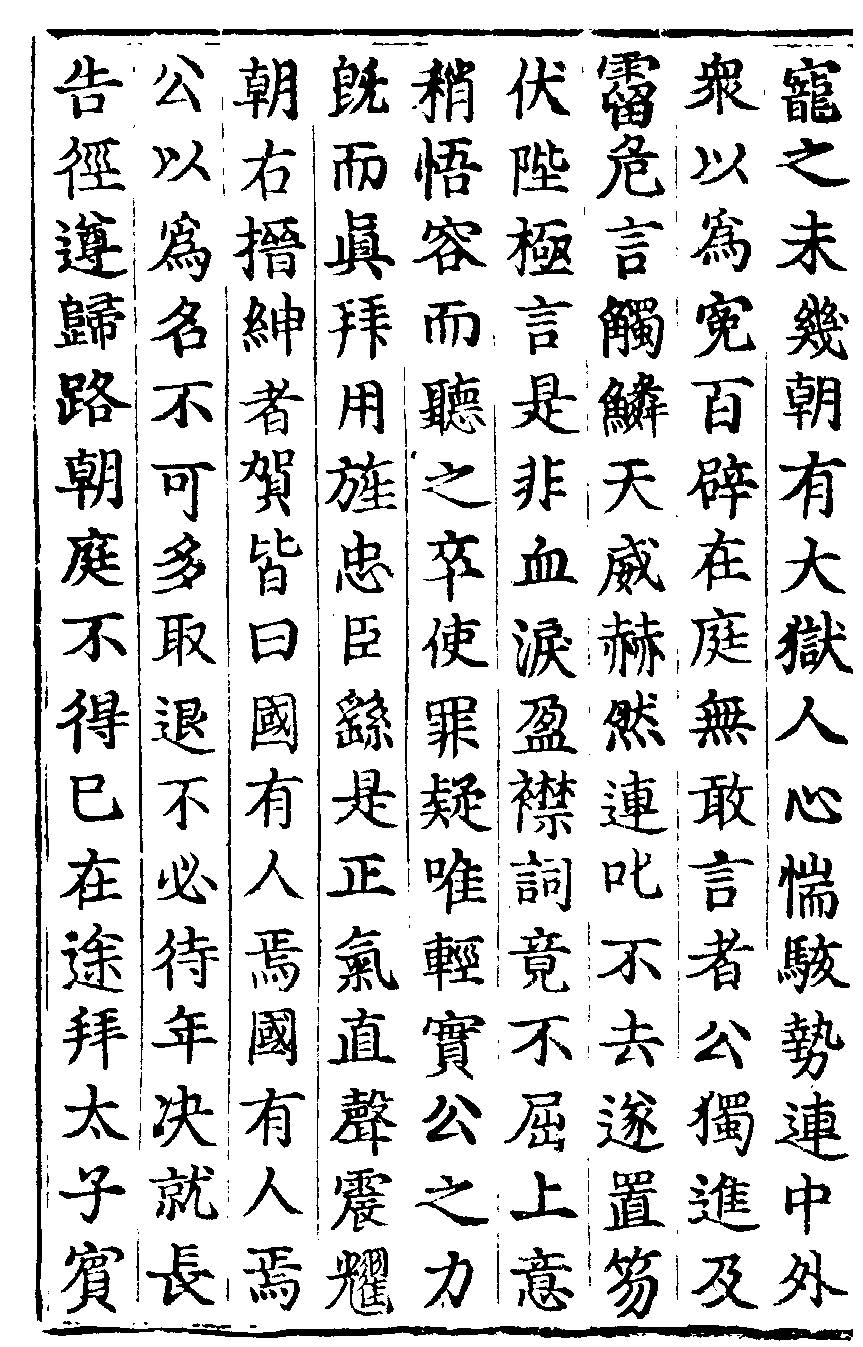 寵之未幾朝有大獄人心惴駭勢連中外
衆以爲寃百辟在庭無敢言者公獨進及
霤危言觸鱗天威赫然連叱不去遂置笏
伏陛極言是非血淚盈襟詞竟不屈上意
稍悟容而聽之卒使罪疑唯輕實公之力
旣而眞拜用旌忠臣繇是正氣直聲震耀
朝右搢紳者賀皆曰國有人焉國有人焉
公以爲名不可多取退不必待年决就長
告徑遵歸路朝庭不得已在途拜太子賓